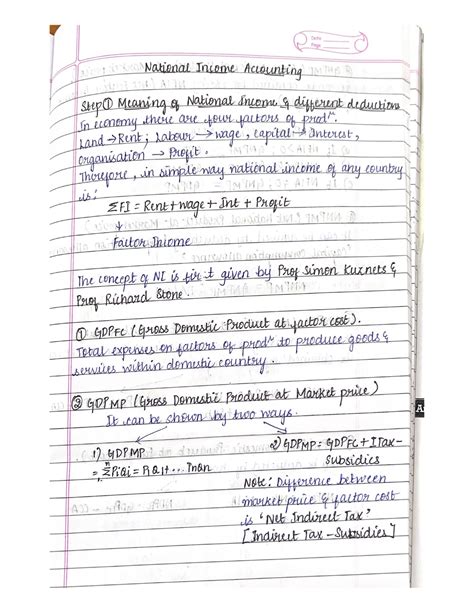 Date
Page
National Income Accounting
Step① Meaning of National Income & different deductions
In economy there are four factors of prodⁿ.
Land → Rent; Labour → wage, capital → Interest,
organisation → Profit.
Therefore, in simple way national income of any country
is:
ΣFI = Rent + wage + Int + Profit
↓
Factor Income
The concept of NI is first given by Prof Simon Kuznets &
Prof Richard Stone.
① GDPFC (Gross Domestic Product at factor cost).
Total expenses on factors of prodⁿ to produce goods &
services within domestic country.
② GDPMP (Gross Domestic Product at Market price)
It can be shown by two ways.
1) GDPMP
= Σ PiQi = P1Q1 + ... PnQn
2) GDPMP = GDPFC + ITax -
Subsidies
Note: Difference between
market price & factor cost
is 'Net Indirect Tax'
[Indirect Tax - Subsidies]